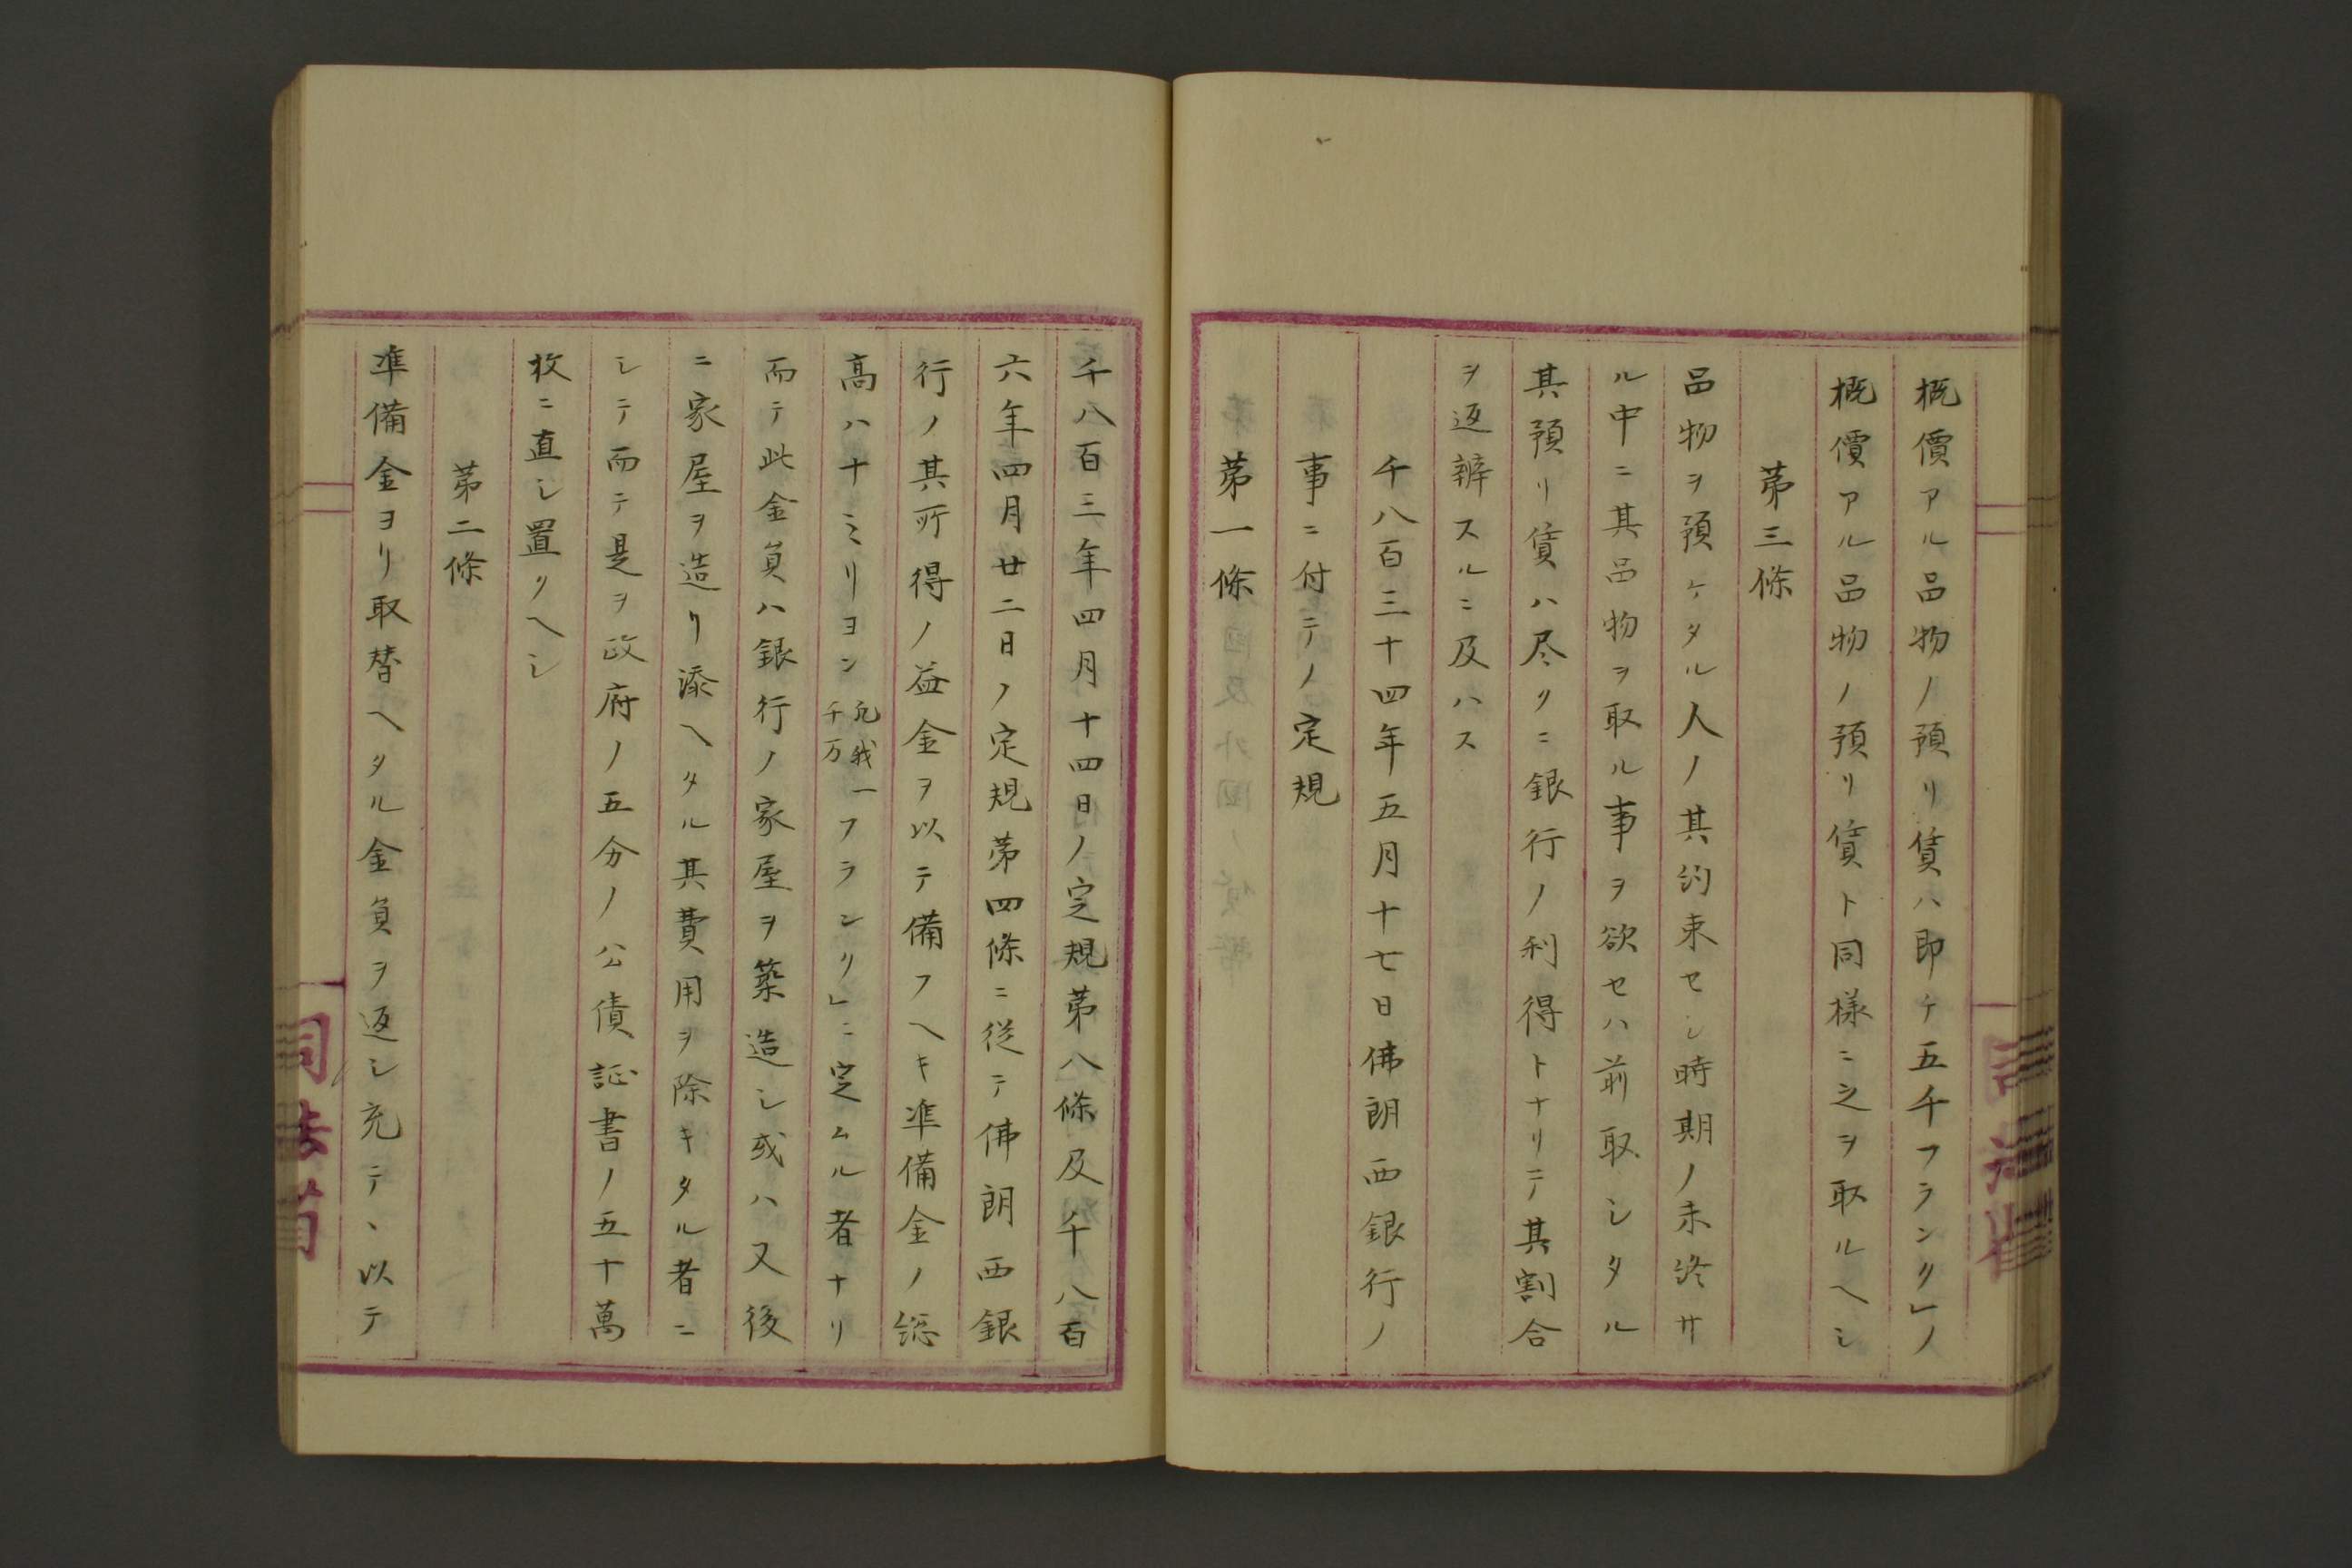 概價アル品物ノ預リ賃ハ即チ五千フランク」ノ
概價アル品物ノ預リ賃ト同様ニ之ヲ取ルヘシ
第三條
品物ヲ預ケタル人ノ其約束セシ時期ノ未終サ
ル中ニ其品物ヲ取ル事ヲ欲セハ前取シタル
其預リ賃ハ尽クニ銀行ノ利得トナリテ其割合
ヲ返辨スルニ及ハス
千八百三十四年五月十七日佛朗西銀行ノ
事ニ付テノ定規
第一條
千八百三年四月十四日ノ定規第八條及千八百
六年四月廿二日ノ定規第四條ニ従テ佛朗西銀
行ノ其所得ノ益金ヲ以テ備フヘキ準備金ノ総
高ハ十ミリヨン凡我千万一フランク」ニ定ムル者ナリ
而テ此金員ハ銀行ノ家屋ヲ築造シ或ハ又後
ニ家屋ヲ造リ添ヘタル其費用ヲ除キタル者ニ
シテ而テ是ヲ政府ノ五分ノ公債証書ノ五十萬
枚ニ直シ置クヘシ
第二條
準備金ヨリ取替ヘタル金員ヲ返シ充テ、以テ
司法省